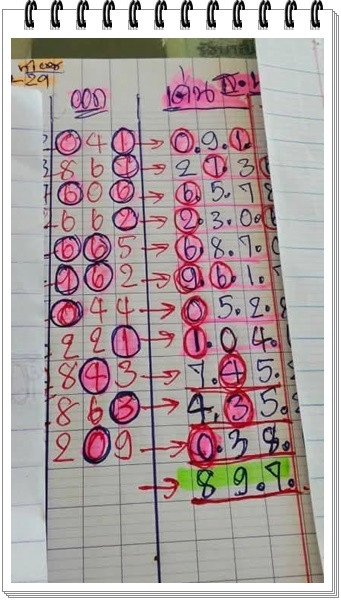 -29
ออก เด่น
0 4 1 → 0.9.1.
8 6 1 → 2 1 3
6 0 6 → 6.5.7 8
6 6 2 → 2.3.0.
6 6 5 → 6.8.7.0
9 6 2 → 9.6.1.
0 4 4 → 0 5.2.8
2 2 1 → 1.0 4.
8 4 3 → 7.4 5.
8 6 3 → 4.3 5.
2 0 9 → 0.3 8.
→ 8 9.7.